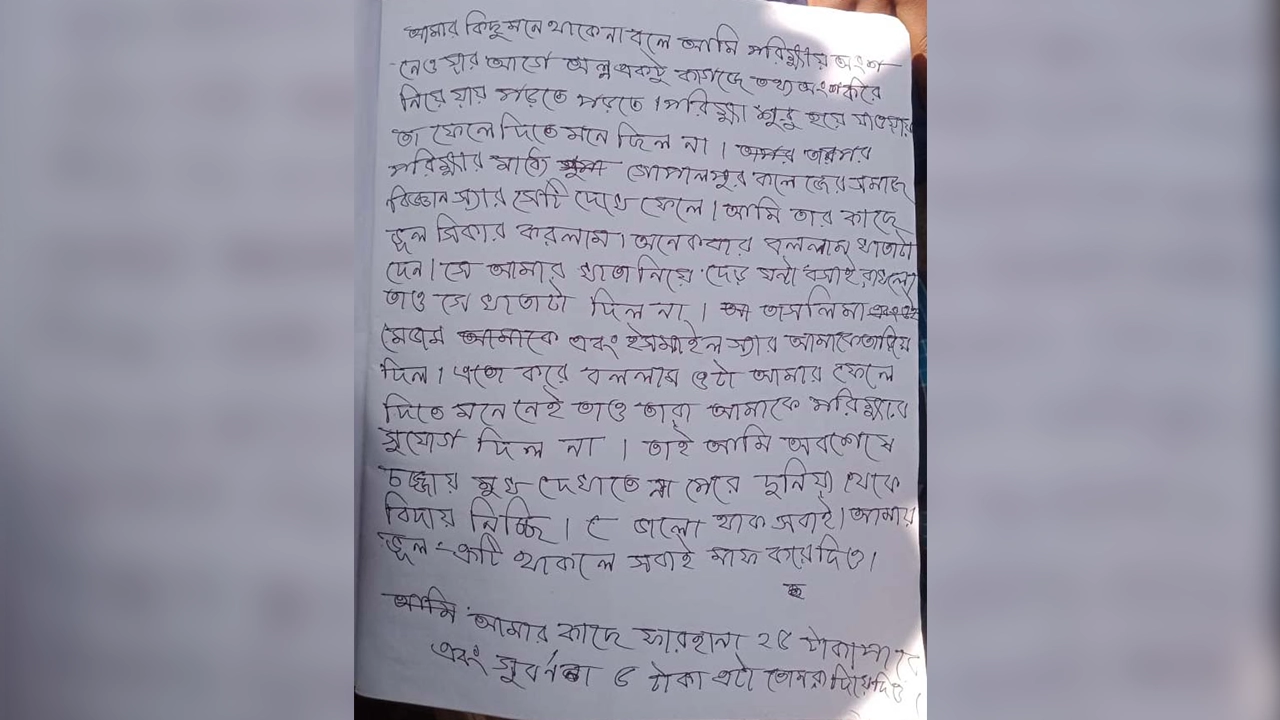 আমার কিছু মনে থাকেনা বলে আমি পরিক্ষায় অংশ
নেওয়ার আগে অল্প একটু কাগজে তথ্য অংশ করে
নিয়ে যায় পরতে পরতে। পরিক্ষা শুরু হয়ে যাওয়ায়
তা ফেলে দিতে মনে ছিল না। তারপর
পরিক্ষার মাঝে গোপালপুর কলেজের সমাজ
বিজ্ঞান স্যার সেটি দেখে ফেলে। আমি তার কাছে
ভুল সিকার করলাম। অনেকবার বললাম খাতাটা
দেন। সে আমার খাতা নিয়ে দেড় ঘন্টা বসাই রাখলো
তাও সে খাতাটা দিল না। তাসলিমা
মেডাম আমাকে এবং ইসমাইল স্যার আমাকে তাড়িয়ে
দিল। এতো করে বললাম ওটা আমার ফেলে
দিতে মনে নেই তাও তারা আমাকে পরিক্ষার
সুযোগ দিল না। তাই আমি অবশেষে
মুখ দেখাতে না পেরে দুনিয়া থেকে
বিদায় নিচ্ছি। ভালো থাক সবাই। আমার
ভুল-ত্রুটি থাকলে সবাই মাফ করে দিও।
আমার কাছে ফারহানা ২৫ টাকা পাবে
এবং সুবর্না ৫ টাকা এটা তোমরা দিয়ে দিও।